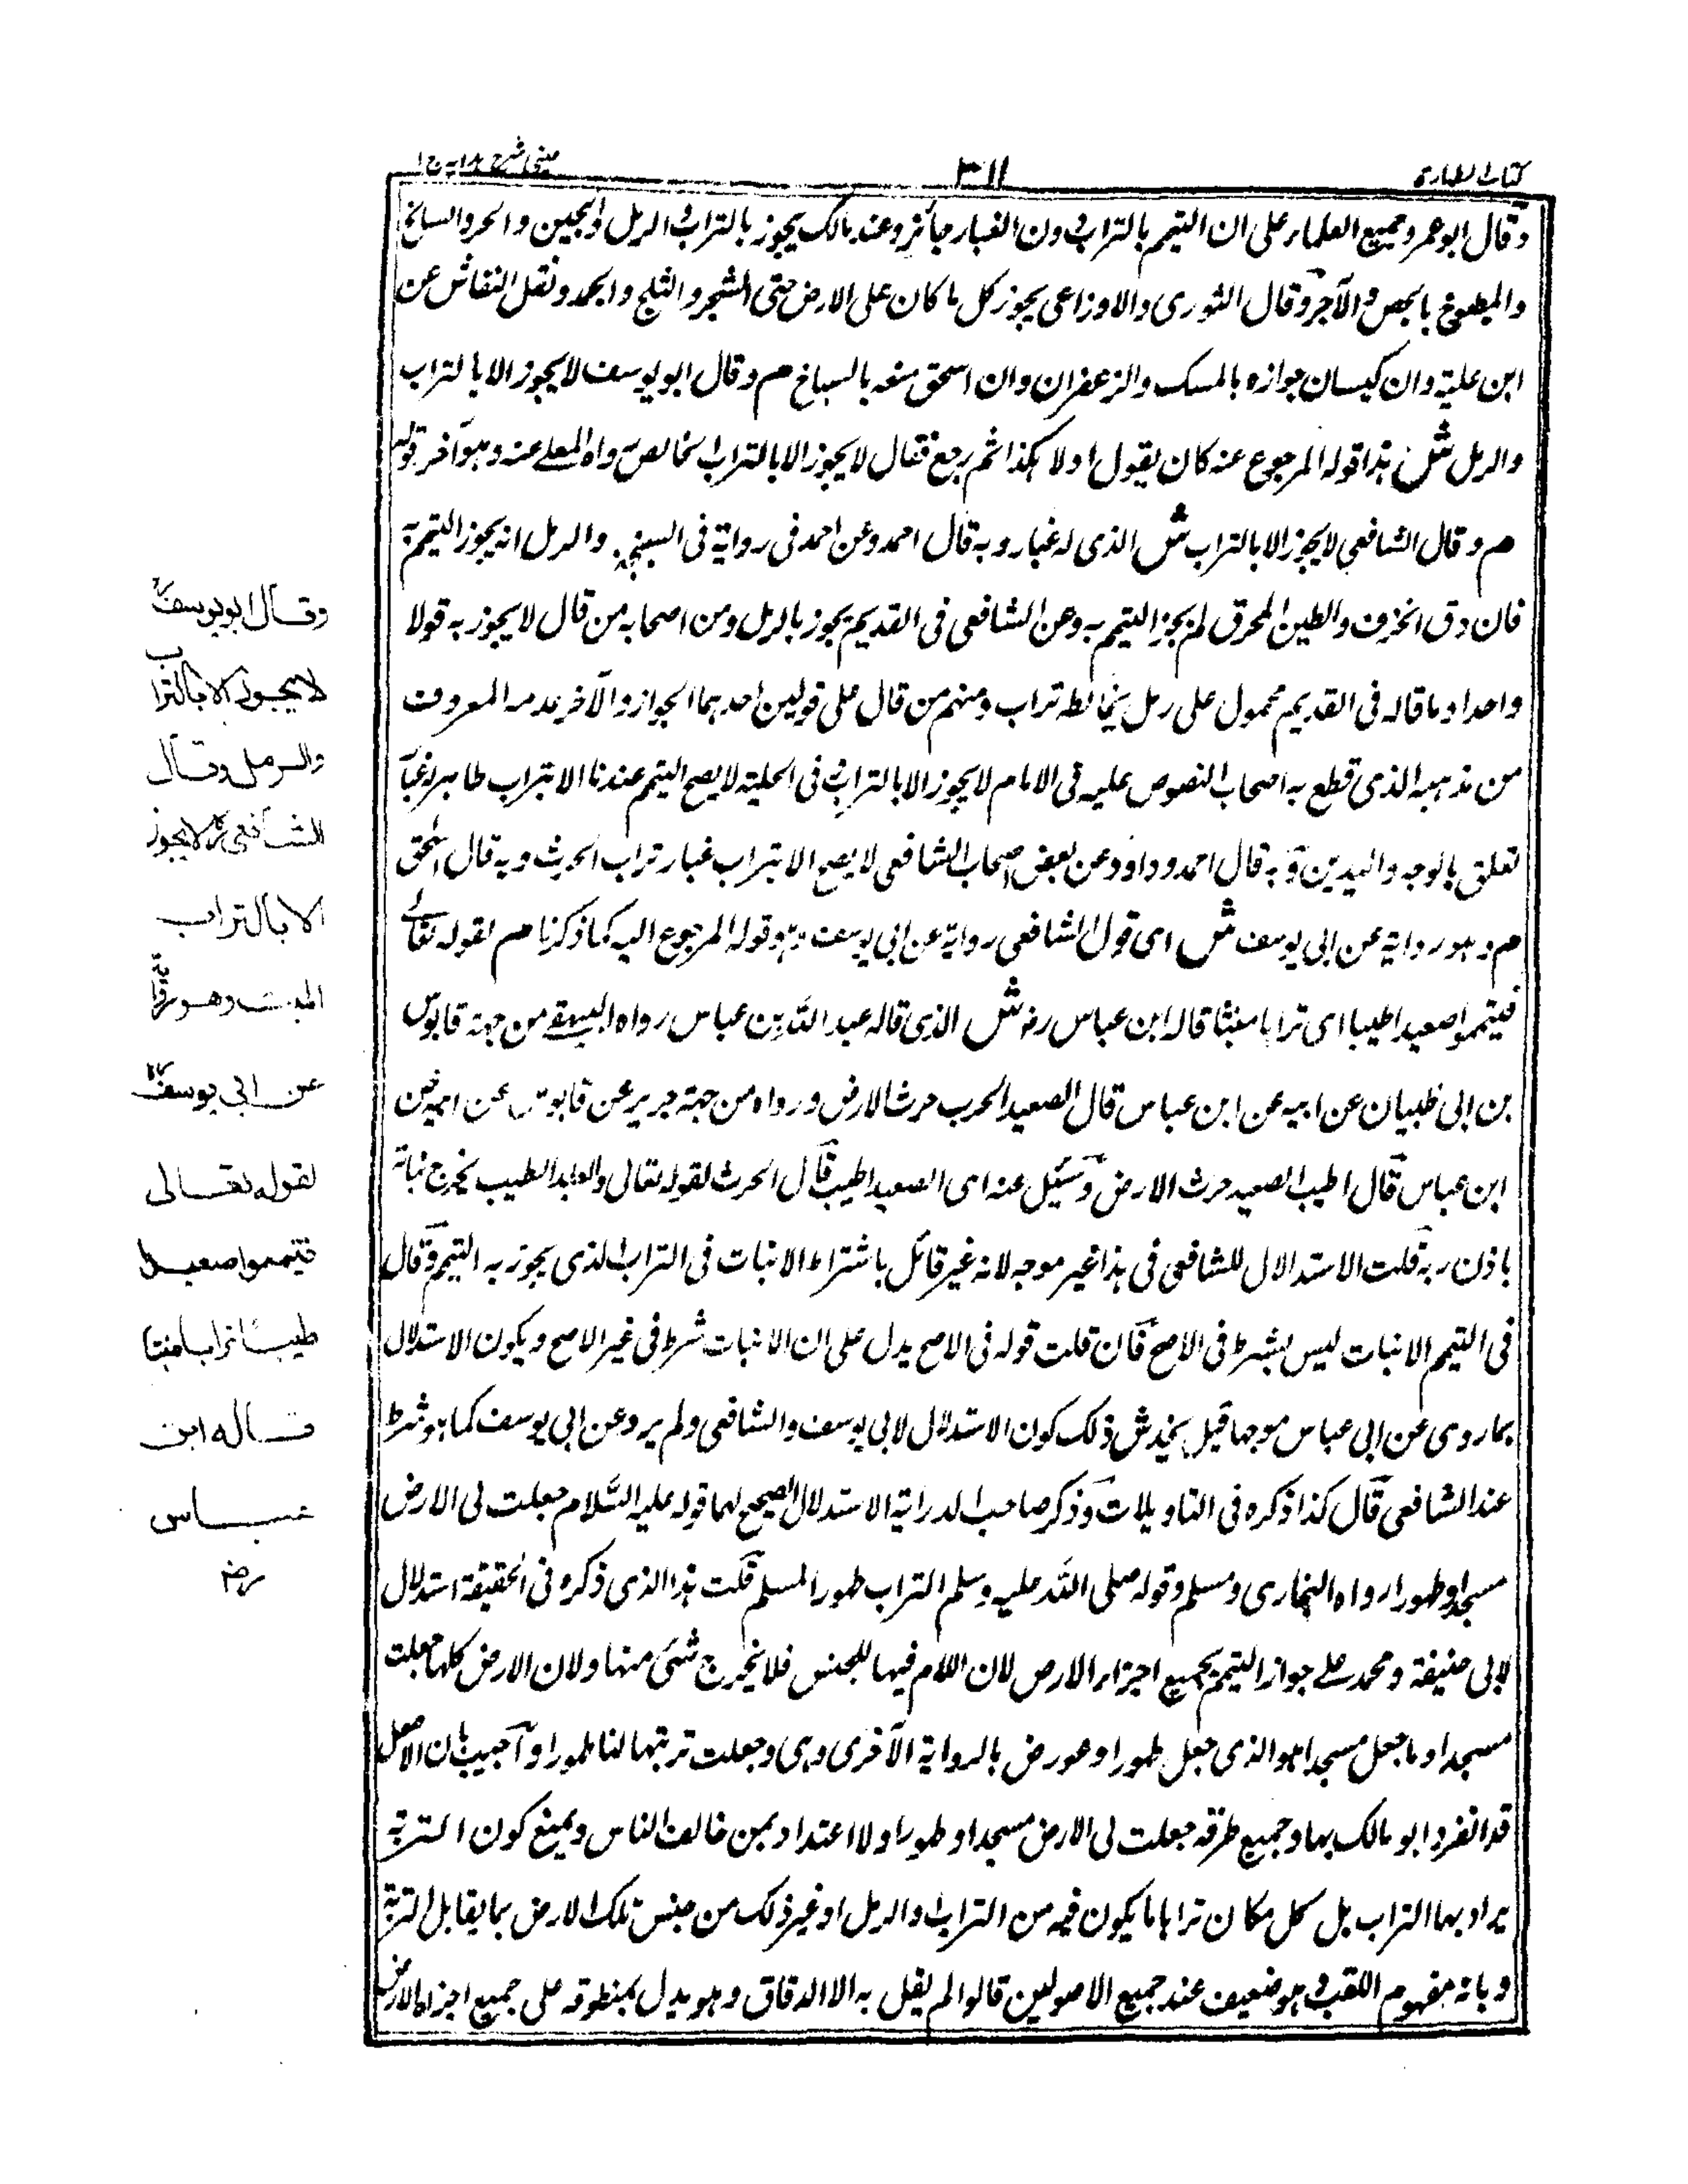 كتاب الطهارة
٣١١
عینی شرح هدایه ج ١
وقال ابو عمر وجميع العلماء على ان التيمم بالتراب دون الغبار جائز وعند مالك يجوز بالتراب والرمل والجبين والحر والسانح
والمطبوخ بالجص والآجر وقال الثوری والاوزاعی يجوز كل ما كان علی الارض حتی الشجر والثلج والجمد ونقل النقاش عن
ابن علية وان كيسان جوازه بالمسك والزعفران وان اسحق منعه بالسباخ م وقال ابو يوسف لا يجوز الا بالتراب
والرمل ش هذا قوله المرجوع عنه كان يقول اولا هكذا ثم رجع فقال لا يجوز الا بالتراب الخالص رواه المعلے عنه وهو آخر قوليه
م وقال الشافعی لا يجوز الا بالتراب ش الذی له غبار وبه قال احمد وعن احمد فی رواية فی السبخة والرمل انه يجوز التيمم به
فان دق الخزف والطين المحرق لم يجز التيمم به وعن الشافعی فی القديم يجوز بالرمل ومن اصحابه من قال لا يجوز به قولا
واحدا وما قاله فی القديم محمول علی رمل يخالطه تراب ومنهم من قال علی قولين احدهما الجواز والآخر عدمه المعروف
من مذهبه الذی قطع به اصحاب النصوص عليه فی الامام لا يجوز الا بالتراب فی الحلية لا يصح التيمم عندنا الا بتراب طاهر له غبار
تعلق بالوجه واليدين وبه قال احمد وداود وعن بعض اصحاب الشافعی لا يصح الا بتراب غبار تراب الحرث وبه قال اسحق
م وهو رواية عن ابی يوسف ش ای قول الشافعی رواية عن ابی يوسف وهو قوله المرجوع اليه كما ذكرنا م لقوله تعالے
فتيمموا صعيدا طيبا ای ترابا منبتا قاله ابن عباس رضہ ش الذی قاله عبد الله بن عباس رواه البيهقے من جهة قابوس
بن ابی ظبيان عن ابيه عن ابن عباس قال الصعيد الحرب حرث الارض ورواه من جهة جرير عن قابوس عن ابيه عن
ابن عباس قال اطيب الصعيد حرث الارض وسئل عنه ای الصعيد اطيب قال الحرث لقوله تعالی والبلد الطيب يخرج نباته
باذن ربه قلت الاستدلال للشافعی فی هذا غير موجه لانه غير قائل باشتراط الانبات فی التراب الذی يجوز به التيمم وقال
فی التيمم الانبات ليس بشرط فی الاصح فان قلت قوله فی الاصح يدل علی ان الانبات شرط فی غير الاصح ويكون الاستدلال
بما روی عن ابی عباس موجها قيل يخدش ذلك كون الاستدلال لابی يوسف والشافعی ولم يرد عن ابی يوسف كما هو شرط
عند الشافعی قال كذا ذكره فی التاويلات وذكر صاحب الدراية الاستدلال الصحيح لهما قوله عليه السلام جعلت لی الارض
مسجدا وطهورا رواه البخاری ومسلم وقوله صلی الله عليه وسلم التراب طهور المسلم قلت هذا الذی ذكره فی الحقيقة استدلال
لابی حنيفة ومحمد علے جواز التيمم بجميع اجزاء الارض لان اللام فيها للجنس فلا يخرج شئ منها ولان الارض كلها جعلت
مسجدا وما جعل مسجدا هو الذی جعل طهورا وعورض بالرواية الآخری وهی وجعلت تربتها لنا طهورا وآجيب بان الاصل
قد انفرد ابو مالك بها وجميع طرقه جعلت لی الارض مسجدا وطهورا ولا اعتداد بمن خالف الناس ويمنع كون التربة
يراد بها التراب بل كل مكان ترابا ما يكون فيه من التراب والرمل او غير ذلك من جنس تلك الارض بما يقابل التربة
وبانه مفهوم اللقب وهو ضعيف عند جميع الاصولين قالوا لم يقل به الا الدقاق وهو يدل بمنطوقه علی جميع اجزاء الارض
وقال ابو يوسف
لا يجوز الا بالتراب
والرمل وقال
الشافعی لا يجوز
الا بالتراب
المنبت وهو رواية
عن ابی يوسف
لقوله تعالی
فتيمموا صعيدا
طيبا ترابا منبتا
قاله ابن
عباس
رضہ